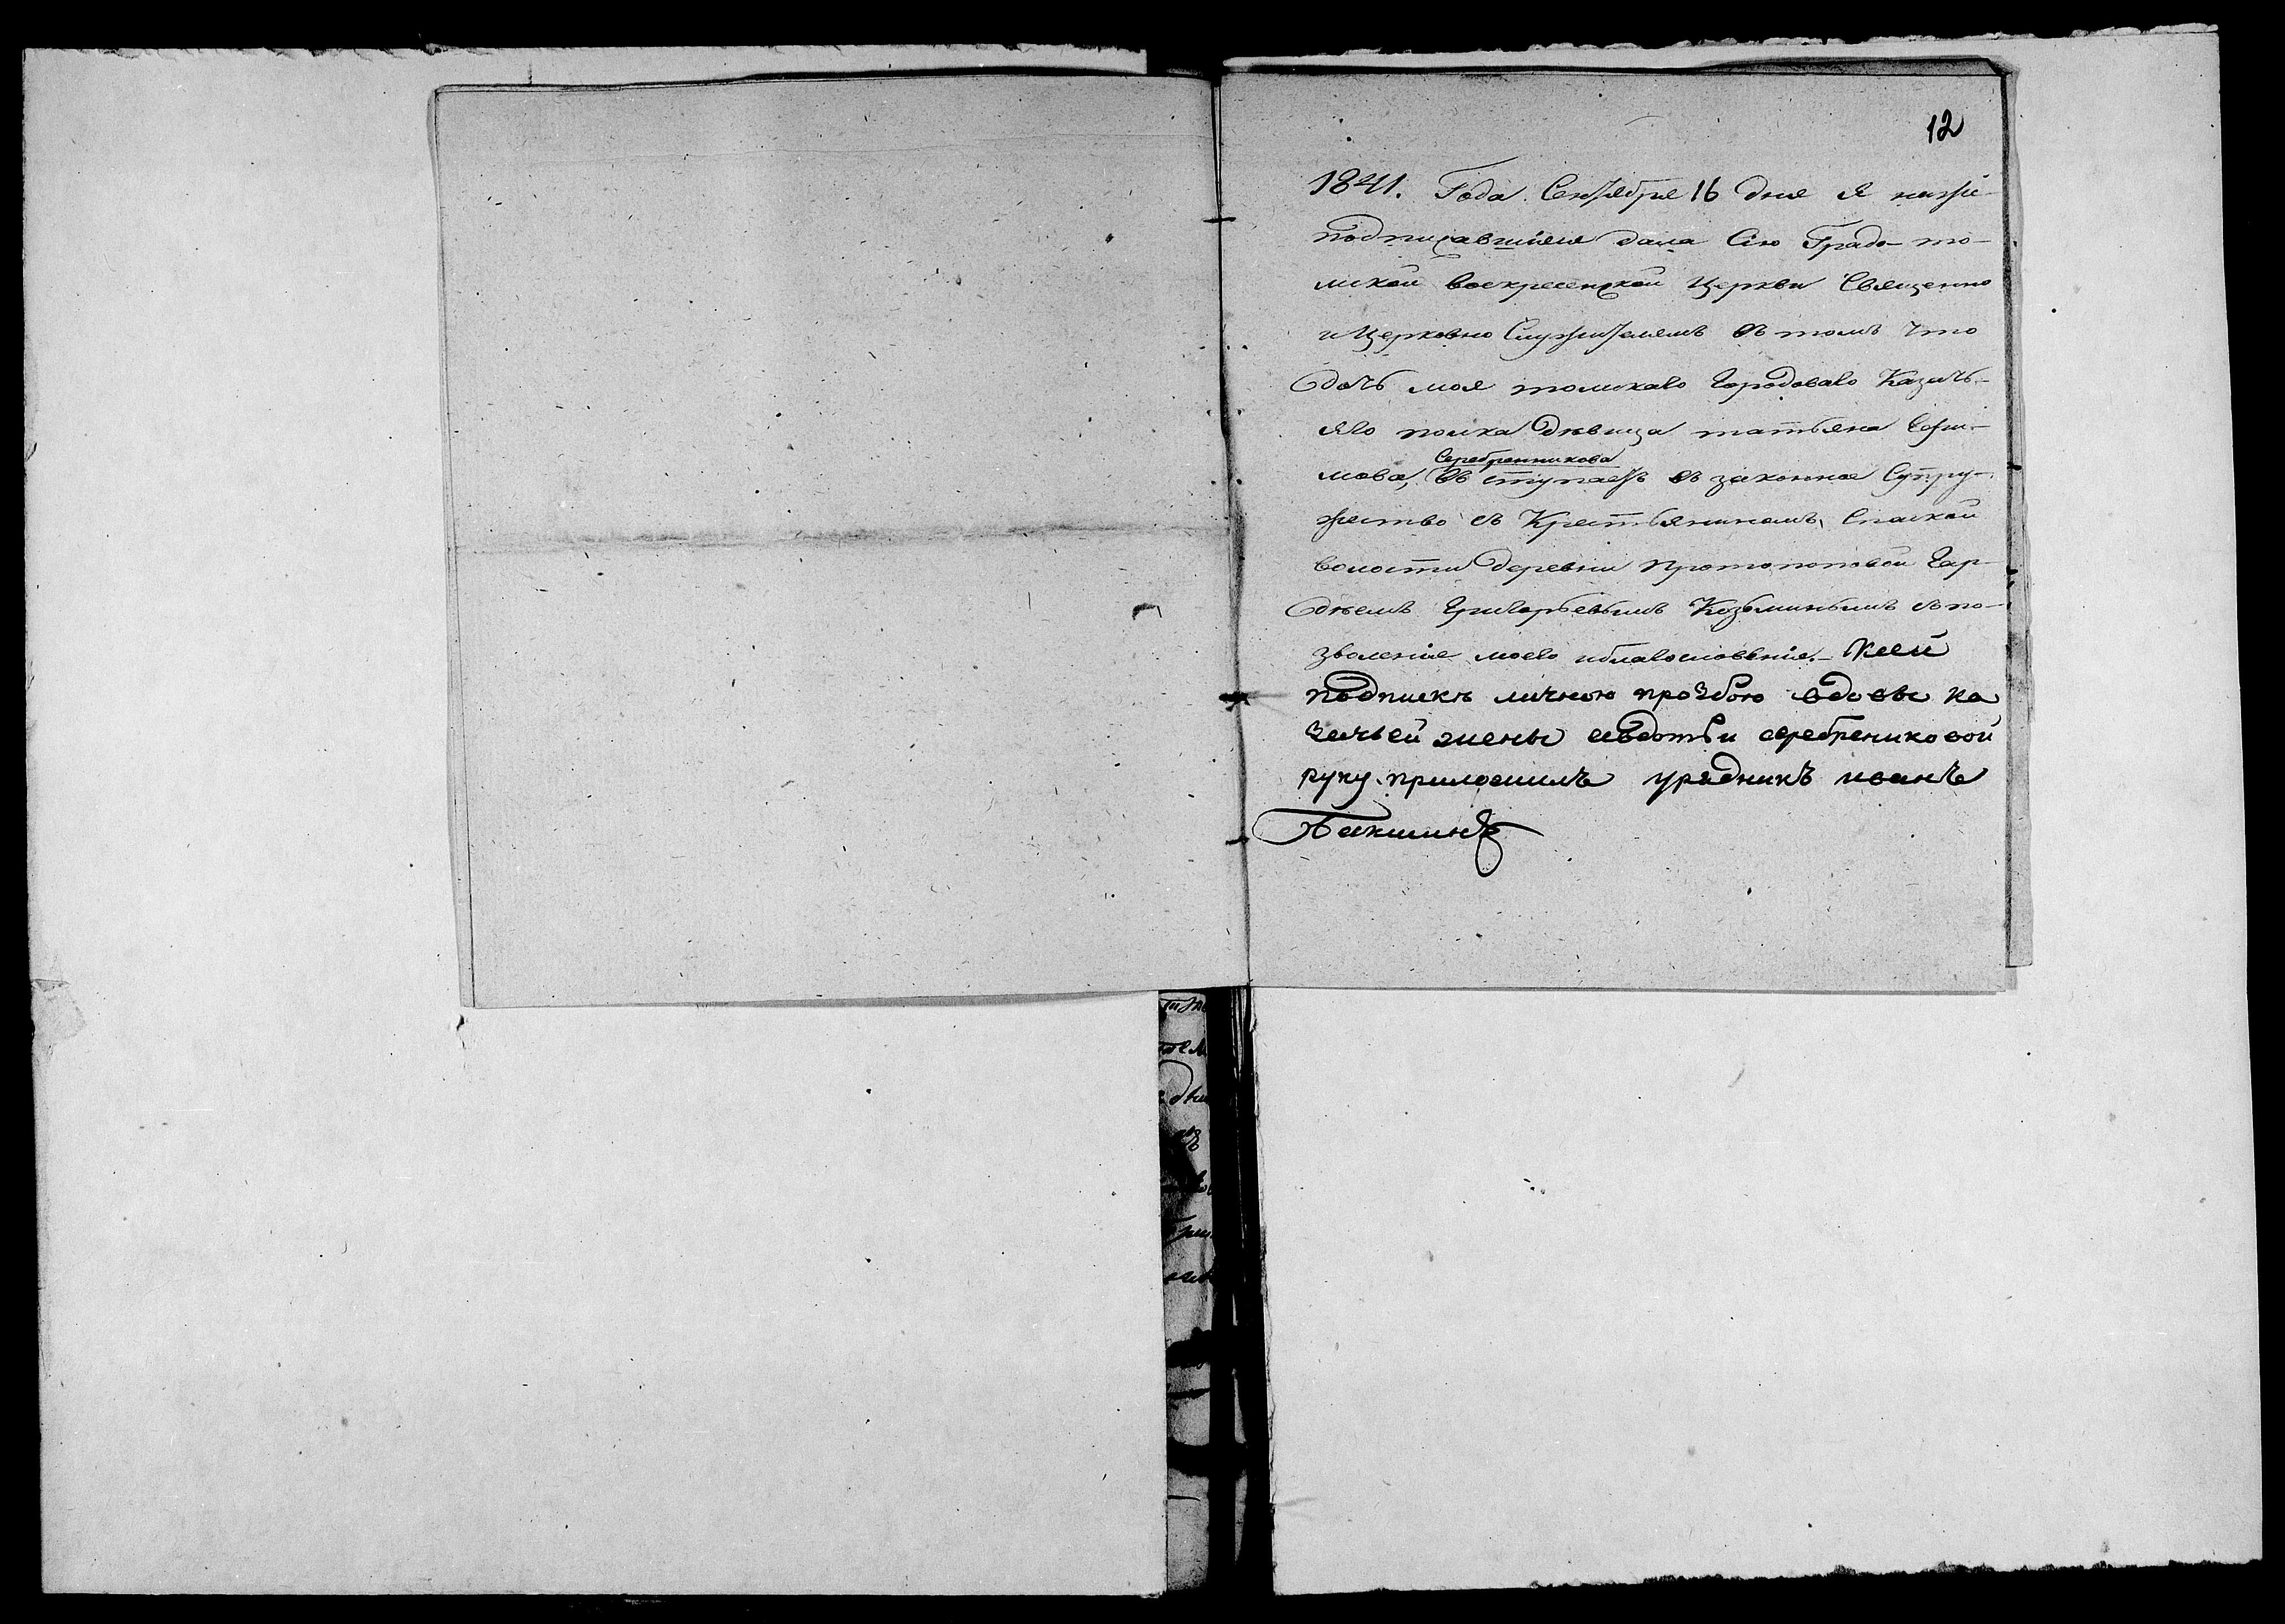 12
1841. Года Сентября 16 дня я ниже-
подписавшіяся дала Сію Градо-то-
мской воскресенской Церкви Священно
и Церковно Служителямъ въ томъ что
дочь моя томскаго Городоваго Казачь-
яго полка дѣвица татьяна Ефи-
Серебренникова
мова, въ ступаетъ въ законное Супру-
жество съ Крестьяниномъ Спаской
волости деревни протопоповой Гар-
дѣемъ Григорьевымъ Козьминымъ съ по-
зволенія моего иблагословенія. - Ксей
подпискѣ личною прозбою вдовы ка
зачьей жены авдотьи серебрениковой
руку приложилъ урядникъ иванъ
Бакшинъ